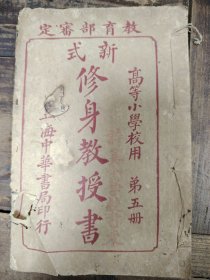 教育部審定
新式
修身教授書
高等小學校用 第五册
上海中華書局印行